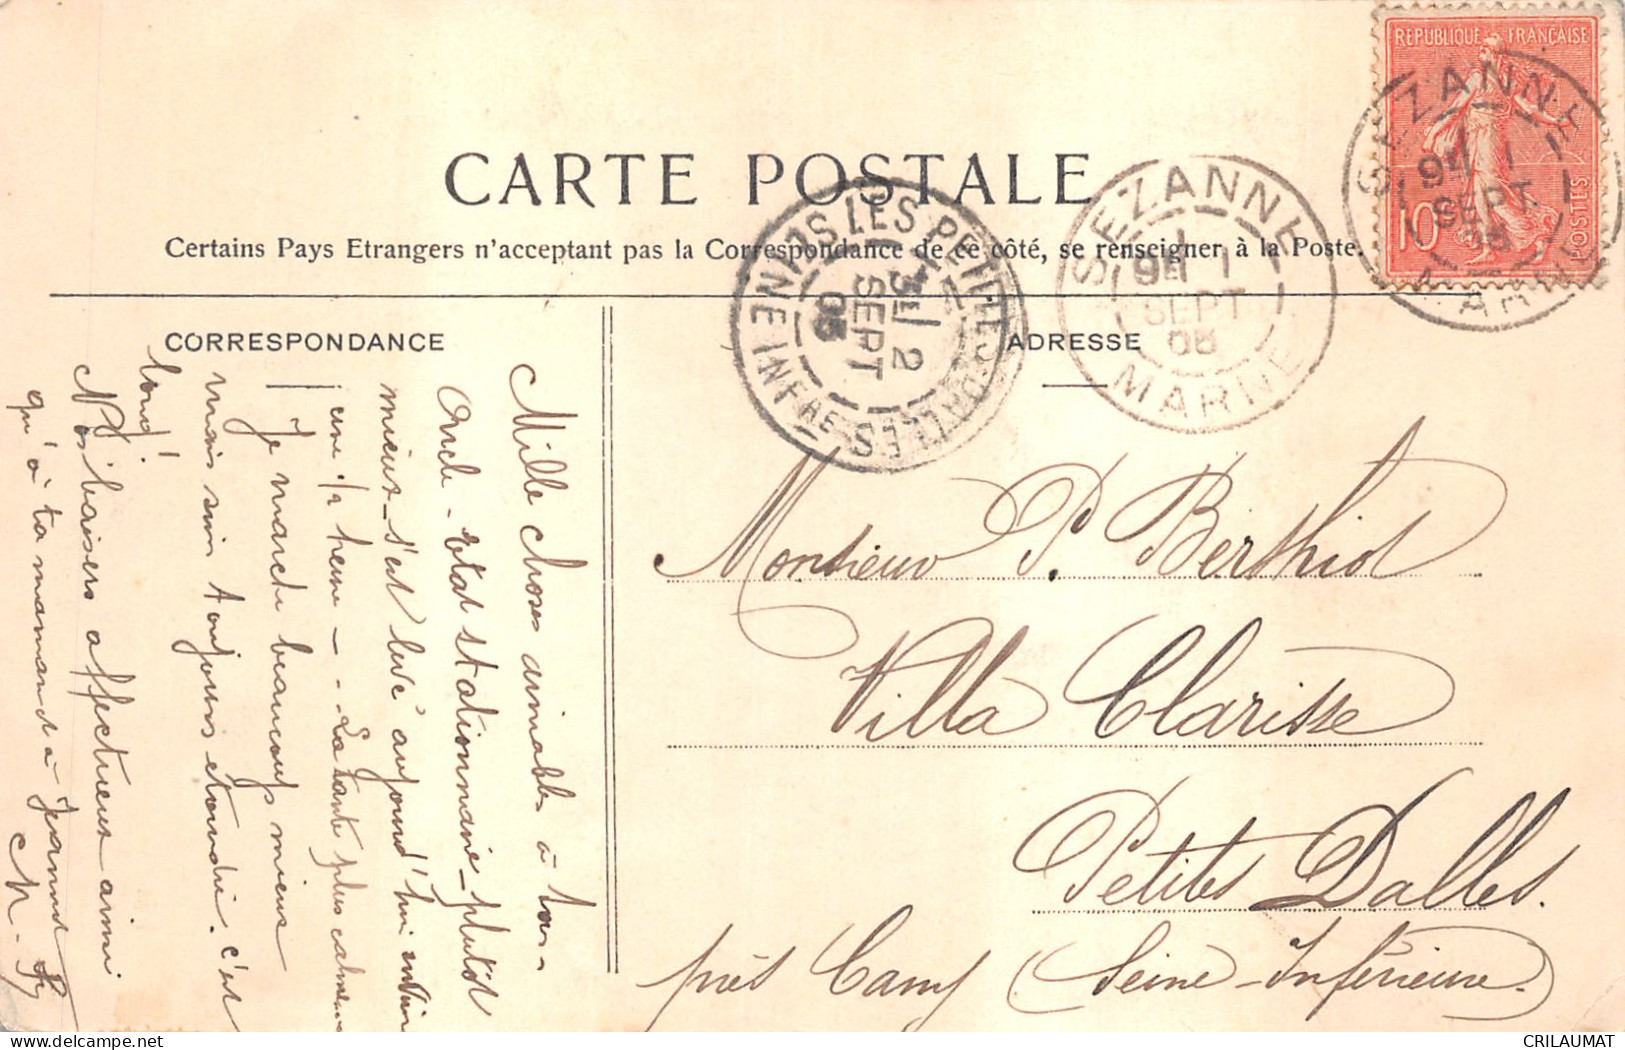 CARTE POSTALE
Certains Pays Etrangers n'acceptant pas la Correspondance de ce côté, se renseigner à la Poste.
REPUBLIQUE FRANÇAISE
10
POSTES
SEZANNE
9H 1
SEPT
05
MARNE
SEZANNE
9H 1
SEPT.
05
MARNE
LES PETITES DALLES
2
SEPT
05
SEINE INFRE
CORRESPONDANCE
ADRESSE
Mille choses aimables à tous -
Oncle - Etat stationnaire - plutôt
mieux - s'est levé aujourd'hui environ
une 1/2 heure - - La tante plus calme
Je marche beaucoup mieux
mais suis toujours étourdie. c'est
long!
Nos baisers affectueux ainsi
qu'à ta maman et à Jeanne
M.
Monsieur P. Berthiot
Villa Clarisse
Petites Dalles.
près Cany (Seine-Inférieure.)
CRILAUMAT